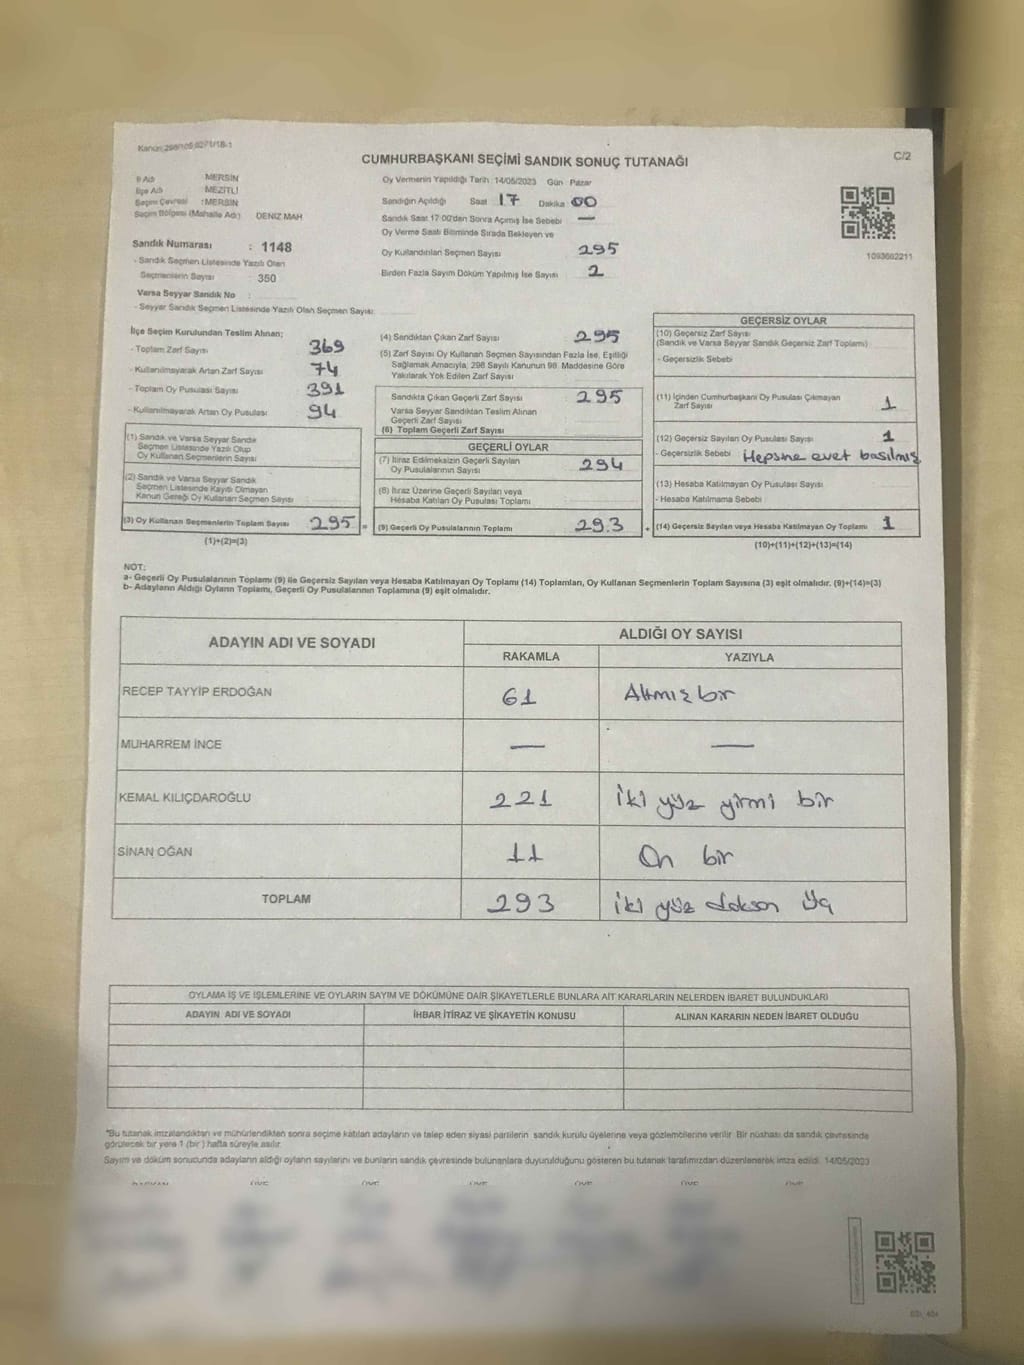 CUMHURBAŞKANI SEÇİMİ SANDIK SONUÇ TUTANAĞI
C/2
İl Adı MERSİN
İlçe Adı MEZİTLİ
Seçim Çevresi : MERSİN
Seçim Bölgesi (Mahalle Adı) DENİZ MAH
Sandık Numarası : 1148
- Sandık Seçmen Listesinde Yazılı Olan
Seçmenlerin Sayısı 350
Varsa Seyyar Sandık No :
- Seyyar Sandık Seçmen Listesinde Yazılı Olan Seçmen Sayısı:
Oy Vermenin Yapıldığı Tarih : 14/05/2023 Gün : Pazar
Sandığın Açıldığı Saat 17 Dakika 00
Sandık Saat 17:00'den Sonra Açılmış İse Sebebi —
Oy Verme Saati Bitiminde Sırada Bekleyen ve
Oy Kullandırılan Seçmen Sayısı 295
Birden Fazla Sayım Döküm Yapılmış İse Sayısı 2
1093602211
İlçe Seçim Kurulundan Teslim Alınan;
- Toplam Zarf Sayısı 369
- Kullanılmayarak Artan Zarf Sayısı 74
- Toplam Oy Pusulası Sayısı 391
- Kullanılmayarak Artan Oy Pusulası 94
(1) Sandık ve Varsa Seyyar Sandık
Seçmen Listesinde Yazılı Olup
Oy Kullanan Seçmenlerin Sayısı
(2) Sandık ve Varsa Seyyar Sandık
Seçmen Listesinde Kayıtlı Olmayan
Kanun Gereği Oy Kullanan Seçmen Sayısı
(3) Oy Kullanan Seçmenlerin Toplam Sayısı 295 =
(1)+(2)=(3)
(4) Sandıktan Çıkan Zarf Sayısı 295
(5) Zarf Sayısı Oy Kullanan Seçmen Sayısından Fazla İse, Eşitliği
Sağlamak Amacıyla, 298 Sayılı Kanunun 98. Maddesine Göre
Yakılarak Yok Edilen Zarf Sayısı
Sandıkta Çıkan Geçerli Zarf Sayısı 295
Varsa Seyyar Sandıktan Teslim Alınan
Geçerli Zarf Sayısı
(6) Toplam Geçerli Zarf Sayısı
GEÇERLİ OYLAR
(7) İtiraz Edilmeksizin Geçerli Sayılan
Oy Pusulalarının Sayısı 294
(8) İtiraz Üzerine Geçerli Sayılan veya
Hesaba Katılan Oy Pusulası Toplamı
(9) Geçerli Oy Pusulalarının Toplamı 293 +
GEÇERSİZ OYLAR
(10) Geçersiz Zarf Sayısı
(Sandık ve Varsa Seyyar Sandık Geçersiz Zarf Toplamı)
- Geçersizlik Sebebi
(11) İçinden Cumhurbaşkanı Oy Pusulası Çıkmayan
Zarf Sayısı 1
(12) Geçersiz Sayılan Oy Pusulası Sayısı 1
- Geçersizlik Sebebi Hepsine evet basılmış
(13) Hesaba Katılmayan Oy Pusulası Sayısı
- Hesaba Katılmama Sebebi
(14) Geçersiz Sayılan veya Hesaba Katılmayan Oy Toplamı 1
(10)+(11)+(12)+(13)=(14)
NOT:
a- Geçerli Oy Pusulalarının Toplamı (9) ile Geçersiz Sayılan veya Hesaba Katılmayan Oy Toplamı (14) Toplamları, Oy Kullanan Seçmenlerin Toplam Sayısına (3) eşit olmalıdır. (9)+(14)=(3)
b- Adayların Aldığı Oyların Toplamı, Geçerli Oy Pusulalarının Toplamına (9) eşit olmalıdır.
ADAYIN ADI VE SOYADI ALDIĞI OY SAYISI
RAKAMLA YAZIYLA
RECEP TAYYİP ERDOĞAN 61 Altmış bir
MUHARREM İNCE — —
KEMAL KILIÇDAROĞLU 221 İki yüz yirmi bir
SİNAN OĞAN 11 On bir
TOPLAM 293 iki yüz doksan üç
OYLAMA İŞ VE İŞLEMLERİNE VE OYLARIN SAYIM VE DÖKÜMÜNE DAİR ŞİKAYETLERLE BUNLARA AİT KARARLARIN NELERDEN İBARET BULUNDUKLARI
ADAYIN ADI VE SOYADI İHBAR İTİRAZ VE ŞİKAYETİN KONUSU ALINAN KARARIN NEDEN İBARET OLDUĞU
*Bu tutanak imzalandıktan ve mühürlendikten sonra seçime katılan adayların ve talep eden siyasi partilerin sandık kurulu üyelerine veya gözlemcilerine verilir. Bir nüshası da sandık çevresinde
görülecek bir yere 1 (bir) hafta süreyle asılır.
Sayım ve döküm sonucunda adayların aldığı oyların sayılarını ve bunların sandık çevresinde bulunanlara duyurulduğunu gösteren bu tutanak tarafımızdan düzenlenerek imza edildi. 14/05/2023